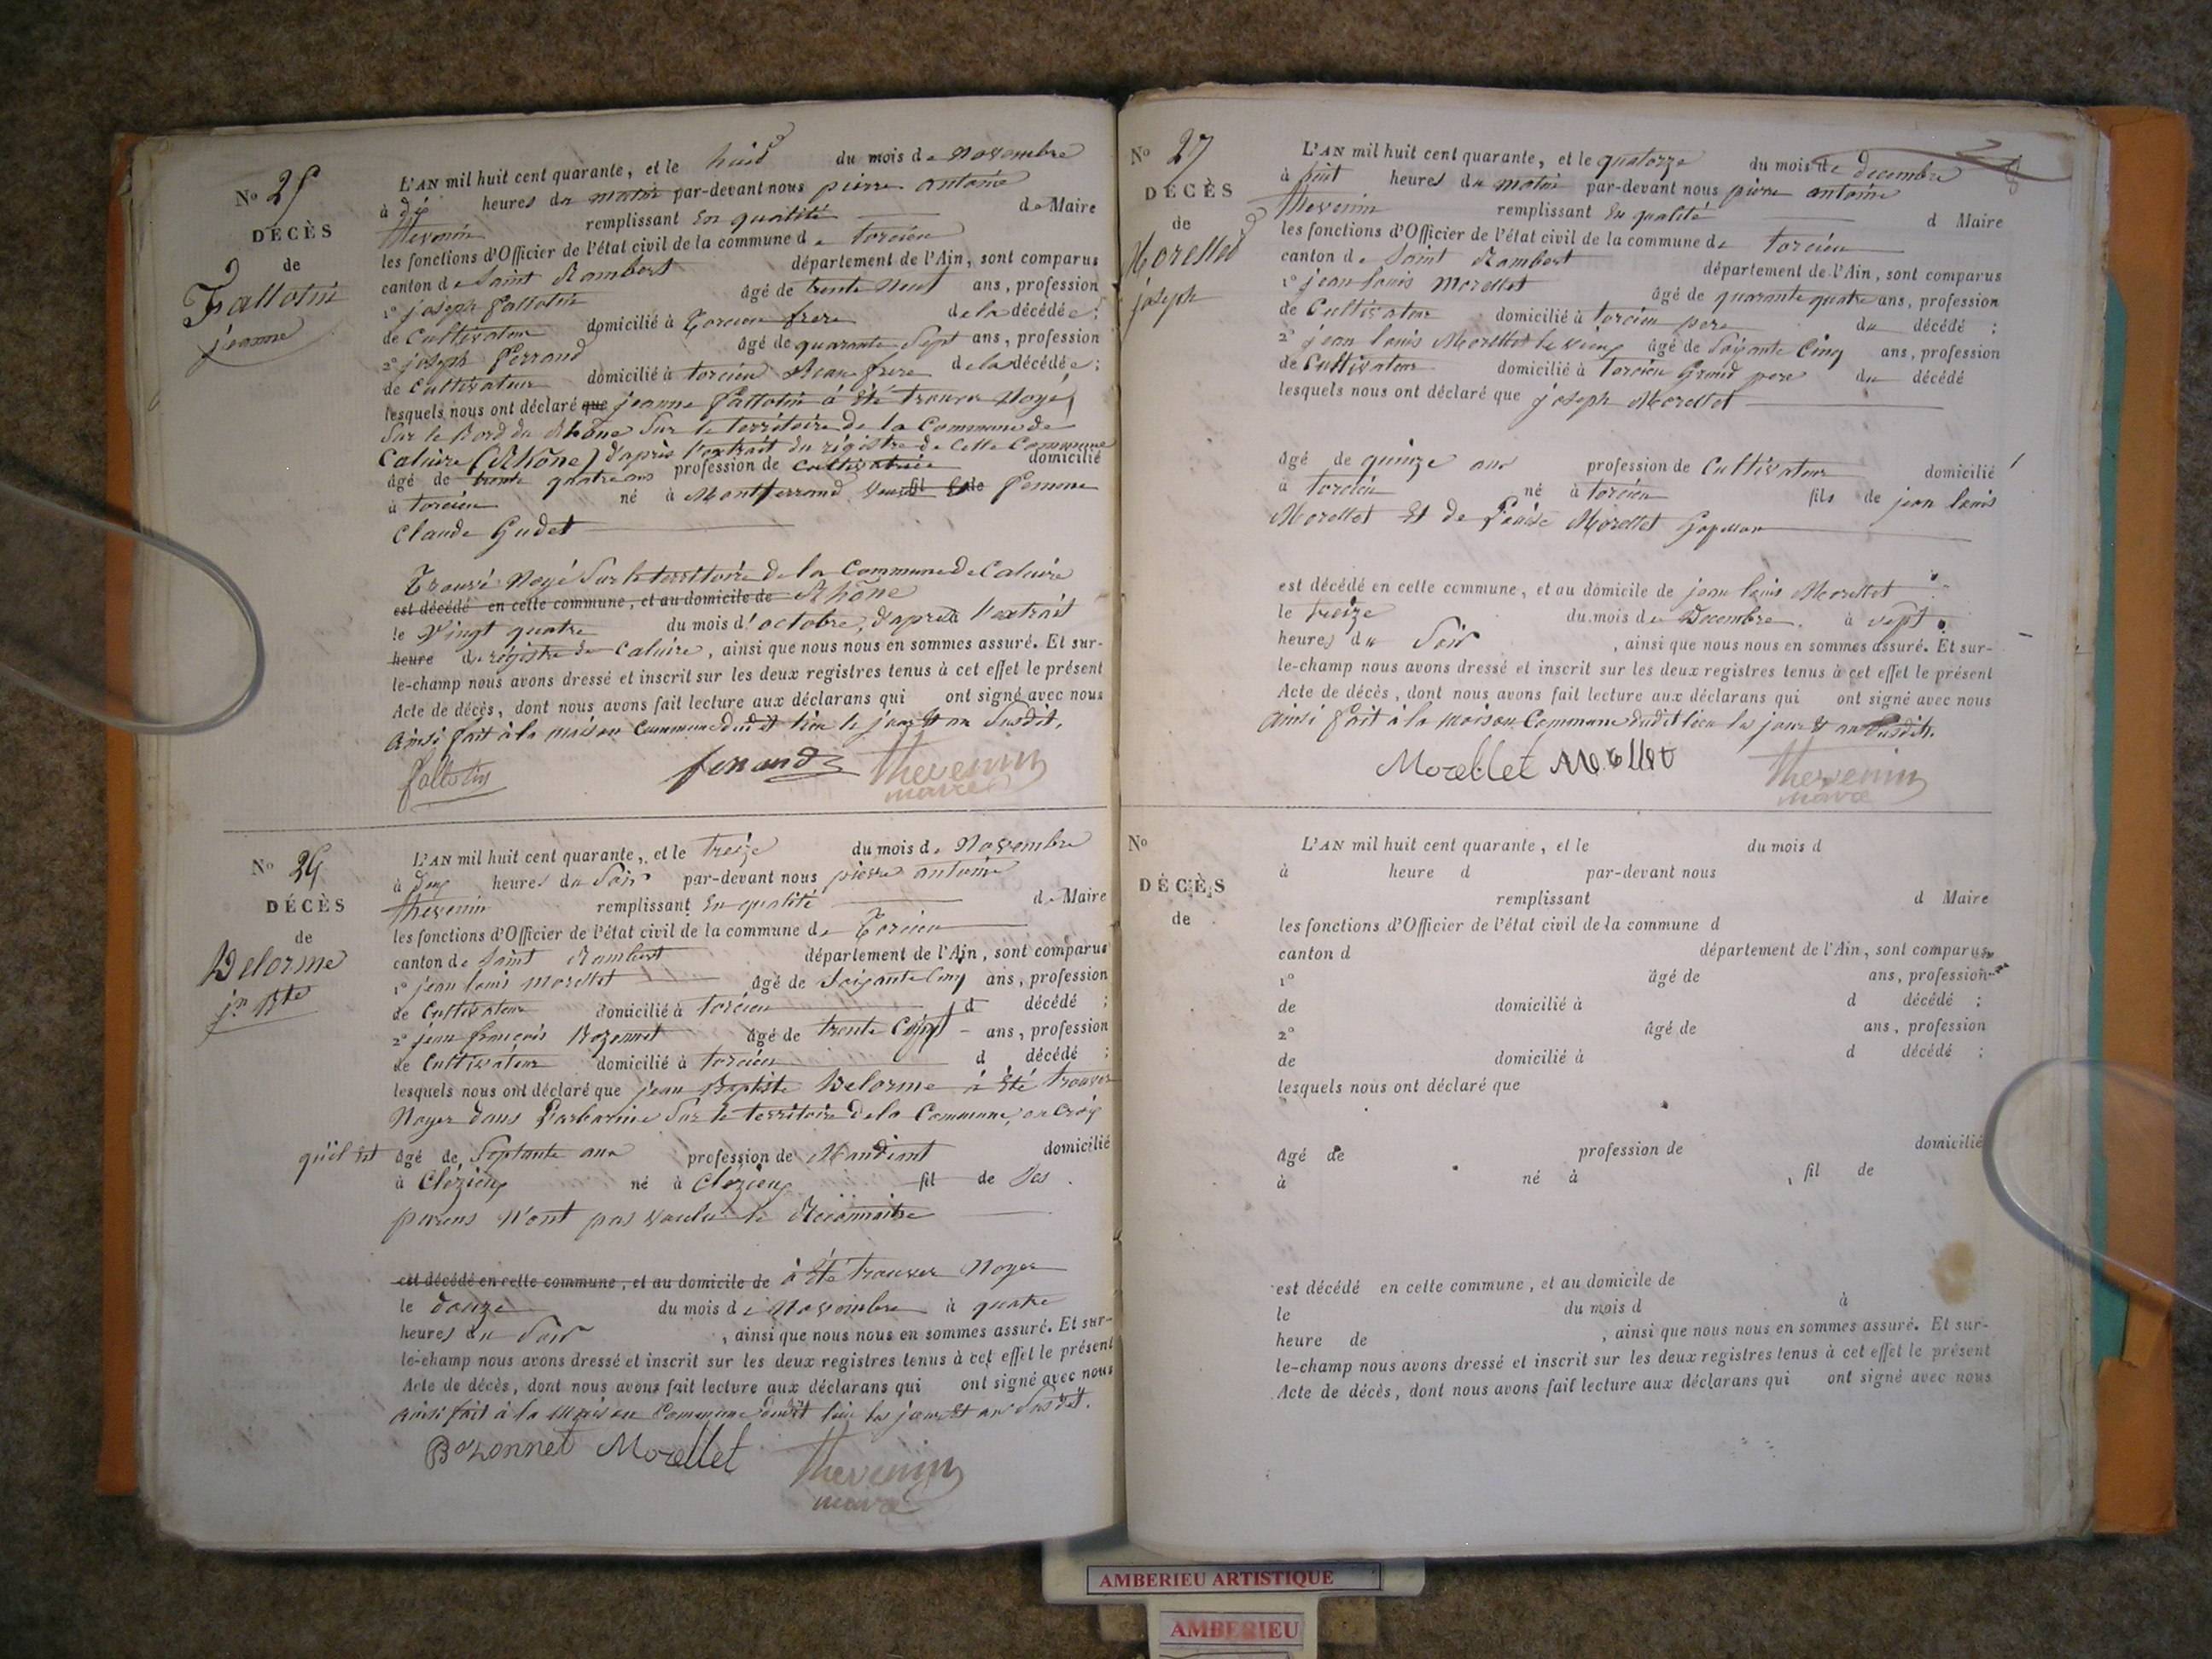 N° 25
DÉCÈS
de
Fallotin
jeanne
L'AN mil huit cent quarante, et le huit du mois de Novembre
à dix heures du matin par-devant nous pierre antoine
thevenin remplissant En qualité de Maire
les fonctions d'Officier de l'état civil de la commune de torcieu
canton de Saint Rambert département de l'Ain, sont comparus
1° joseph fallotin âgé de trente Neuf ans, profession
de Cultivateur domicilié à Torcieu frere de la décédée ;
2° joseph Ferrand âgé de quarante Sept ans, profession
de Cultivateur domicilié à torcieu Beau frere de la décédée ;
lesquels nous ont déclaré que jeanne fallotin à Été trouver Noyé,
Sur le Bord du Rhône Sur le territoire de la Commune de
Caluire (Rhône) d'après l'extrait du régistre de Cette Commune
âgé de trente quatre ans profession de Cultivatrice domicilié
à torcieu né à Montferrand fil de Femme
Claude Gudet
Trouvé Noyé Sur le territoire de la Commune de Caluire
est décédé en cette commune, et au domicile de Rhône
le Vingt quatre du mois d'octobre, d'après l'extrait
heure du régistre de Caluire, ainsi que nous nous en sommes assuré. Et sur-
le-champ nous avons dressé et inscrit sur les deux registres tenus à cet effet le présent
Acte de décès, dont nous avons fait lecture aux déclarans qui ont signé avec nous
Ainsi fait à la maison Commune dudit lieu le jour & an Susdit.
fallotin ferrand thevenin
maire
N° 26
DÉCÈS
de
Delorme
jn Bte
L'AN mil huit cent quarante, et le treize du mois de Novembre
à Deux heures du Soir par-devant nous pierre antoine
thevenin remplissant En qualité de Maire
les fonctions d'Officier de l'état civil de la commune de Torcieu
canton de Saint Rambert département de l'Ain, sont comparus
1° jean louis Morellet âgé de Soixante Cinq ans, profession
de Cultivateur domicilié à torcieu d décédé ;
2° jean françois Bozonnet âgé de trente Cinq ans, profession
de Cultivateur domicilié à torcieu d décédé ;
lesquels nous ont déclaré que jean Baptiste Delorme à Été trouver
Noyer dans L'arbarine Sur le territoire de la Commune, on Croix
qu'il est âgé de Septante ans profession de Mandiant domicilié
à Cleyzieux né à Cleyzieux fil de Ses
parens N'ont pas voulu le Reconnaitre
est décédé en cette commune, et au domicile de à Été trouver Noyer
le douze du mois de Novembre à quatre
heures du Soir, ainsi que nous nous en sommes assuré. Et sur-
le-champ nous avons dressé et inscrit sur les deux registres tenus à cet effet le présent
Acte de décès, dont nous avons fait lecture aux déclarans qui ont signé avec nous
Ainsi fait à la Maison Commune dudit lieu les jour Et an Susdit.
Bozonnet Morellet thevenin
maire
N° 27
DÉCÈS
de
Morellet
joseph
L'AN mil huit cent quarante, et le quatorze du mois de decembre
à huit heures du matin par-devant nous pierre antoine
thevenin remplissant En qualité d Maire
les fonctions d'Officier de l'état civil de la commune de torcieu
canton de Saint Rambert département de l'Ain, sont comparus
1° jean louis Morellet âgé de quarante quatre ans, profession
de Cultivateur domicilié à torcieu pere du décédé ;
2° jean louis Morellet le vieux âgé de Soixante Cinq ans, profession
de Cultivateur domicilié à torcieu Grand pere du décédé
lesquels nous ont déclaré que joseph Morellet
âgé de quinze ans profession de Cultivateur domicilié
à torcieu né à torcieu fils de jean louis
Morellet Et de Morellet
est décédé en cette commune, et au domicile de jean louis Morellet
le treize du mois de Decembre à sept
heures du Soir, ainsi que nous nous en sommes assuré. Et sur-
le-champ nous avons dressé et inscrit sur les deux registres tenus à cet effet le présent
Acte de décès, dont nous avons fait lecture aux déclarans qui ont signé avec nous
Ainsi fait à la Maison Commune dudit lieu les jour & an Susdits.
Morellet Morellet thevenin
maire
N°
DÉCÈS
de
L'AN mil huit cent quarante, et le du mois d
à heure d par-devant nous
remplissant d Maire
les fonctions d'Officier de l'état civil de la commune d
canton d département de l'Ain, sont comparus
1° âgé de ans, profession
de domicilié à d décédé ;
2° âgé de ans, profession
de domicilié à d décédé ;
lesquels nous ont déclaré que
âgé de profession de domicilié
à né à , fil de
est décédé en cette commune, et au domicile de
le du mois d à
heure de , ainsi que nous nous en sommes assuré. Et sur-
le-champ nous avons dressé et inscrit sur les deux registres tenus à cet effet le présent
Acte de décès, dont nous avons fait lecture aux déclarans qui ont signé avec nous
AMBERIEU ARTISTIQUE
AMBERIEU